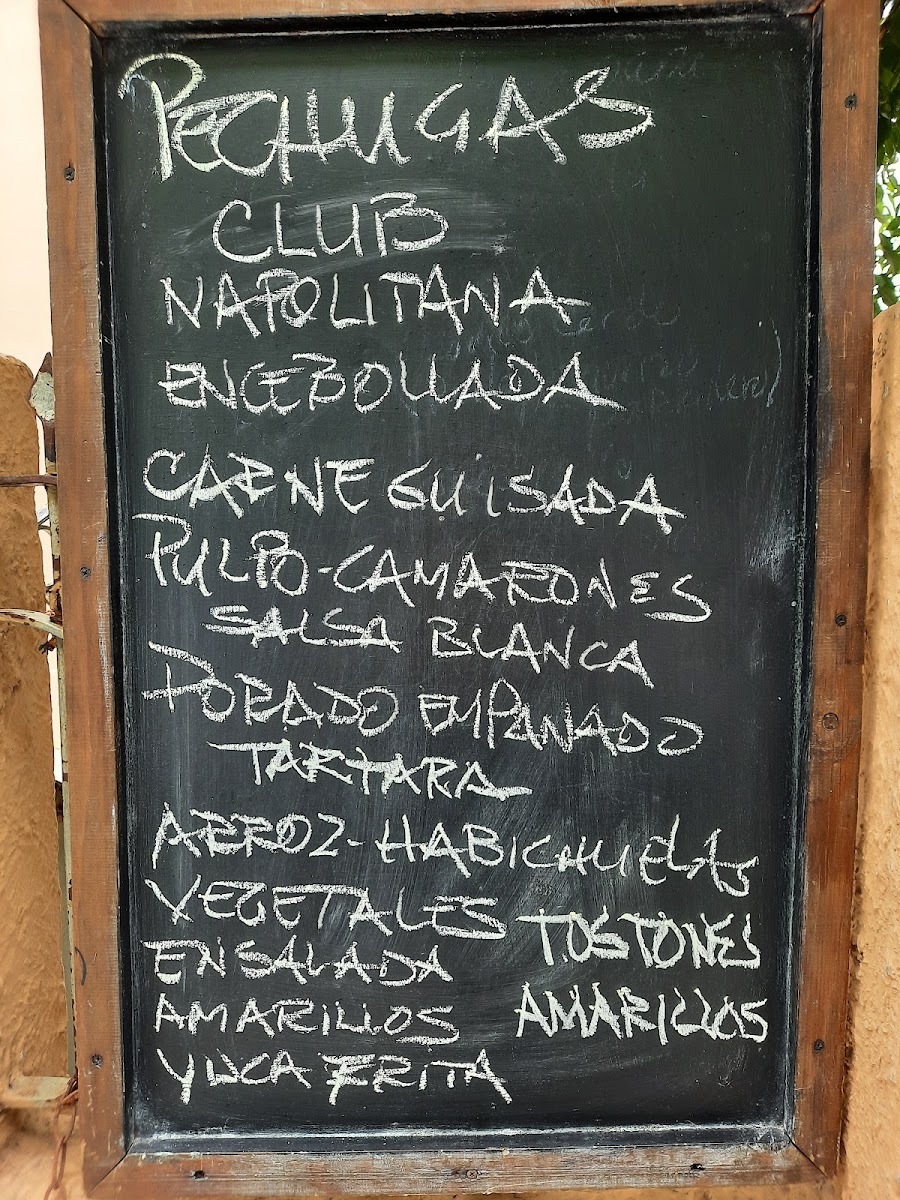 PECHUGAS
CLUB
NAPOLITANA
ENCEBOLLADA
CARNE GUISADA
PULPO-CAMARONES
SALSA BLANCA
DORADO EMPANADO
TARTARA
ARROZ-HABICHUELAS
VEGETALES
TOSTONES
ENSALADA
AMARILLOS
AMARILLOS
YUCA FRITA